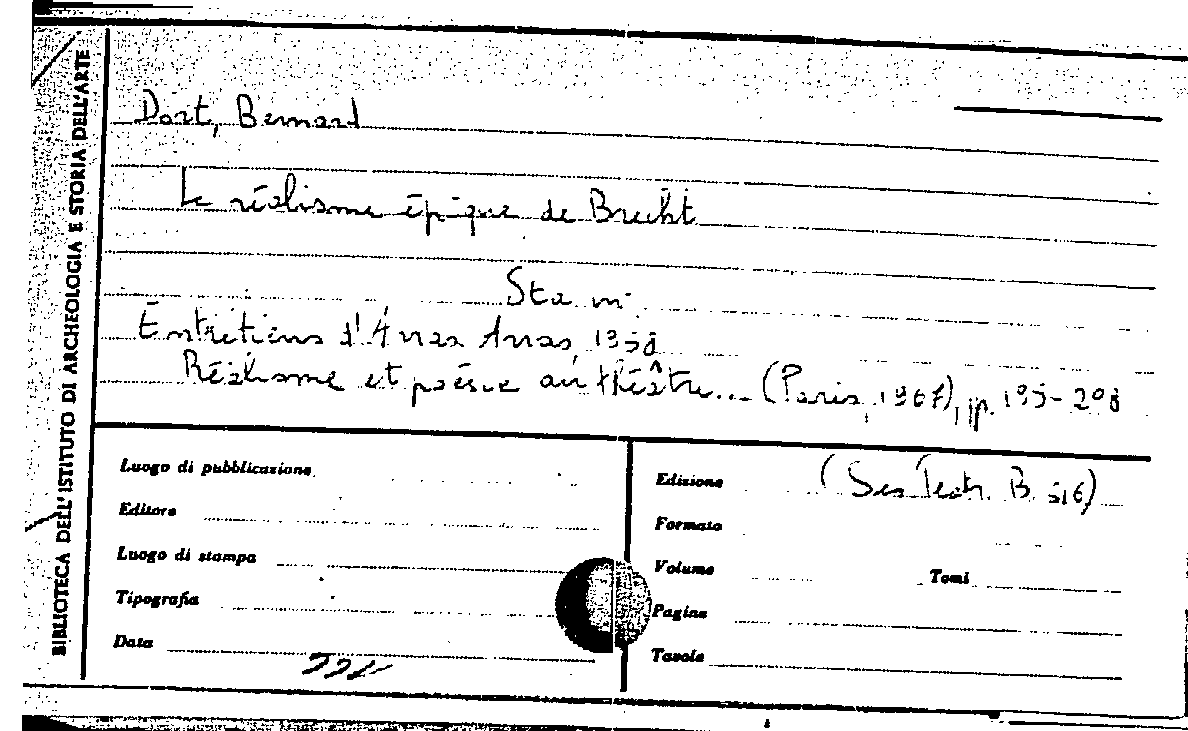 BIBLIOTECA DELL'ISTITUTO DI ARCHEOLOGIA E STORIA DELL'ARTE
Dort, Bernard
Le réalisme épique de Brecht
Sta in:
Entretiens d'Arras Arras, 1958
Réalisme et poésie au théâtre... (Paris, 1967), pp. 195-208
Luogo di pubblicazione
Editore
Luogo di stampa
Tipografia
Data
Edizione (Ses Teatr. B 516)
Formato
Volume Tomi
Pagine
Tavole